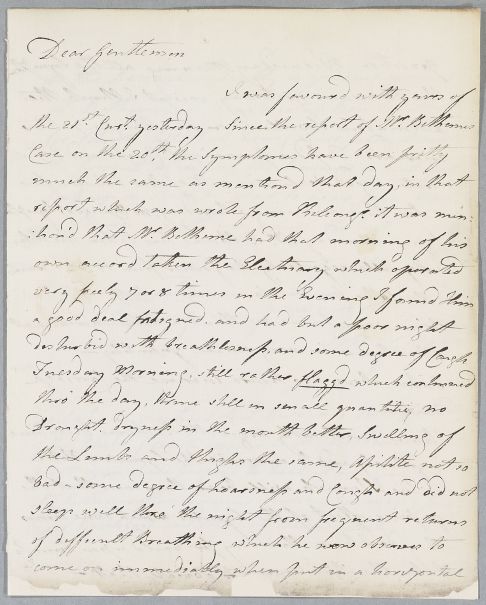 Dear Gentlemen
I was favoured with yours of
the 21st Curt. yesterday - Since the report of Mr. Bethunes
Case on the 20th the Symptomes have been pritty
much the same as mentiond that day, in that
report, which was wrote from it was min:
:tiond that Mr Bethune had that morning of his
own accord taken the Electuary which operated
very freely 7 or 8 times in the Evening I found Him
a good deal fatigued. and had but a poor night
disturbid with breathlesness, and some degree of Cough
Tuesday Morning, still rather flagg'd which continued
thro' the day. Urine still in small quantity, no
Drought. dryness in the mouth better, Swelling of
the Limbs and thighs the same, Apitite not so
bad - some degree of hoarsness and Cough and did not
sleep well thro' the night from frequent returns
of difficult Breathing which he now observes to
come on immediatly when put in a horizontal